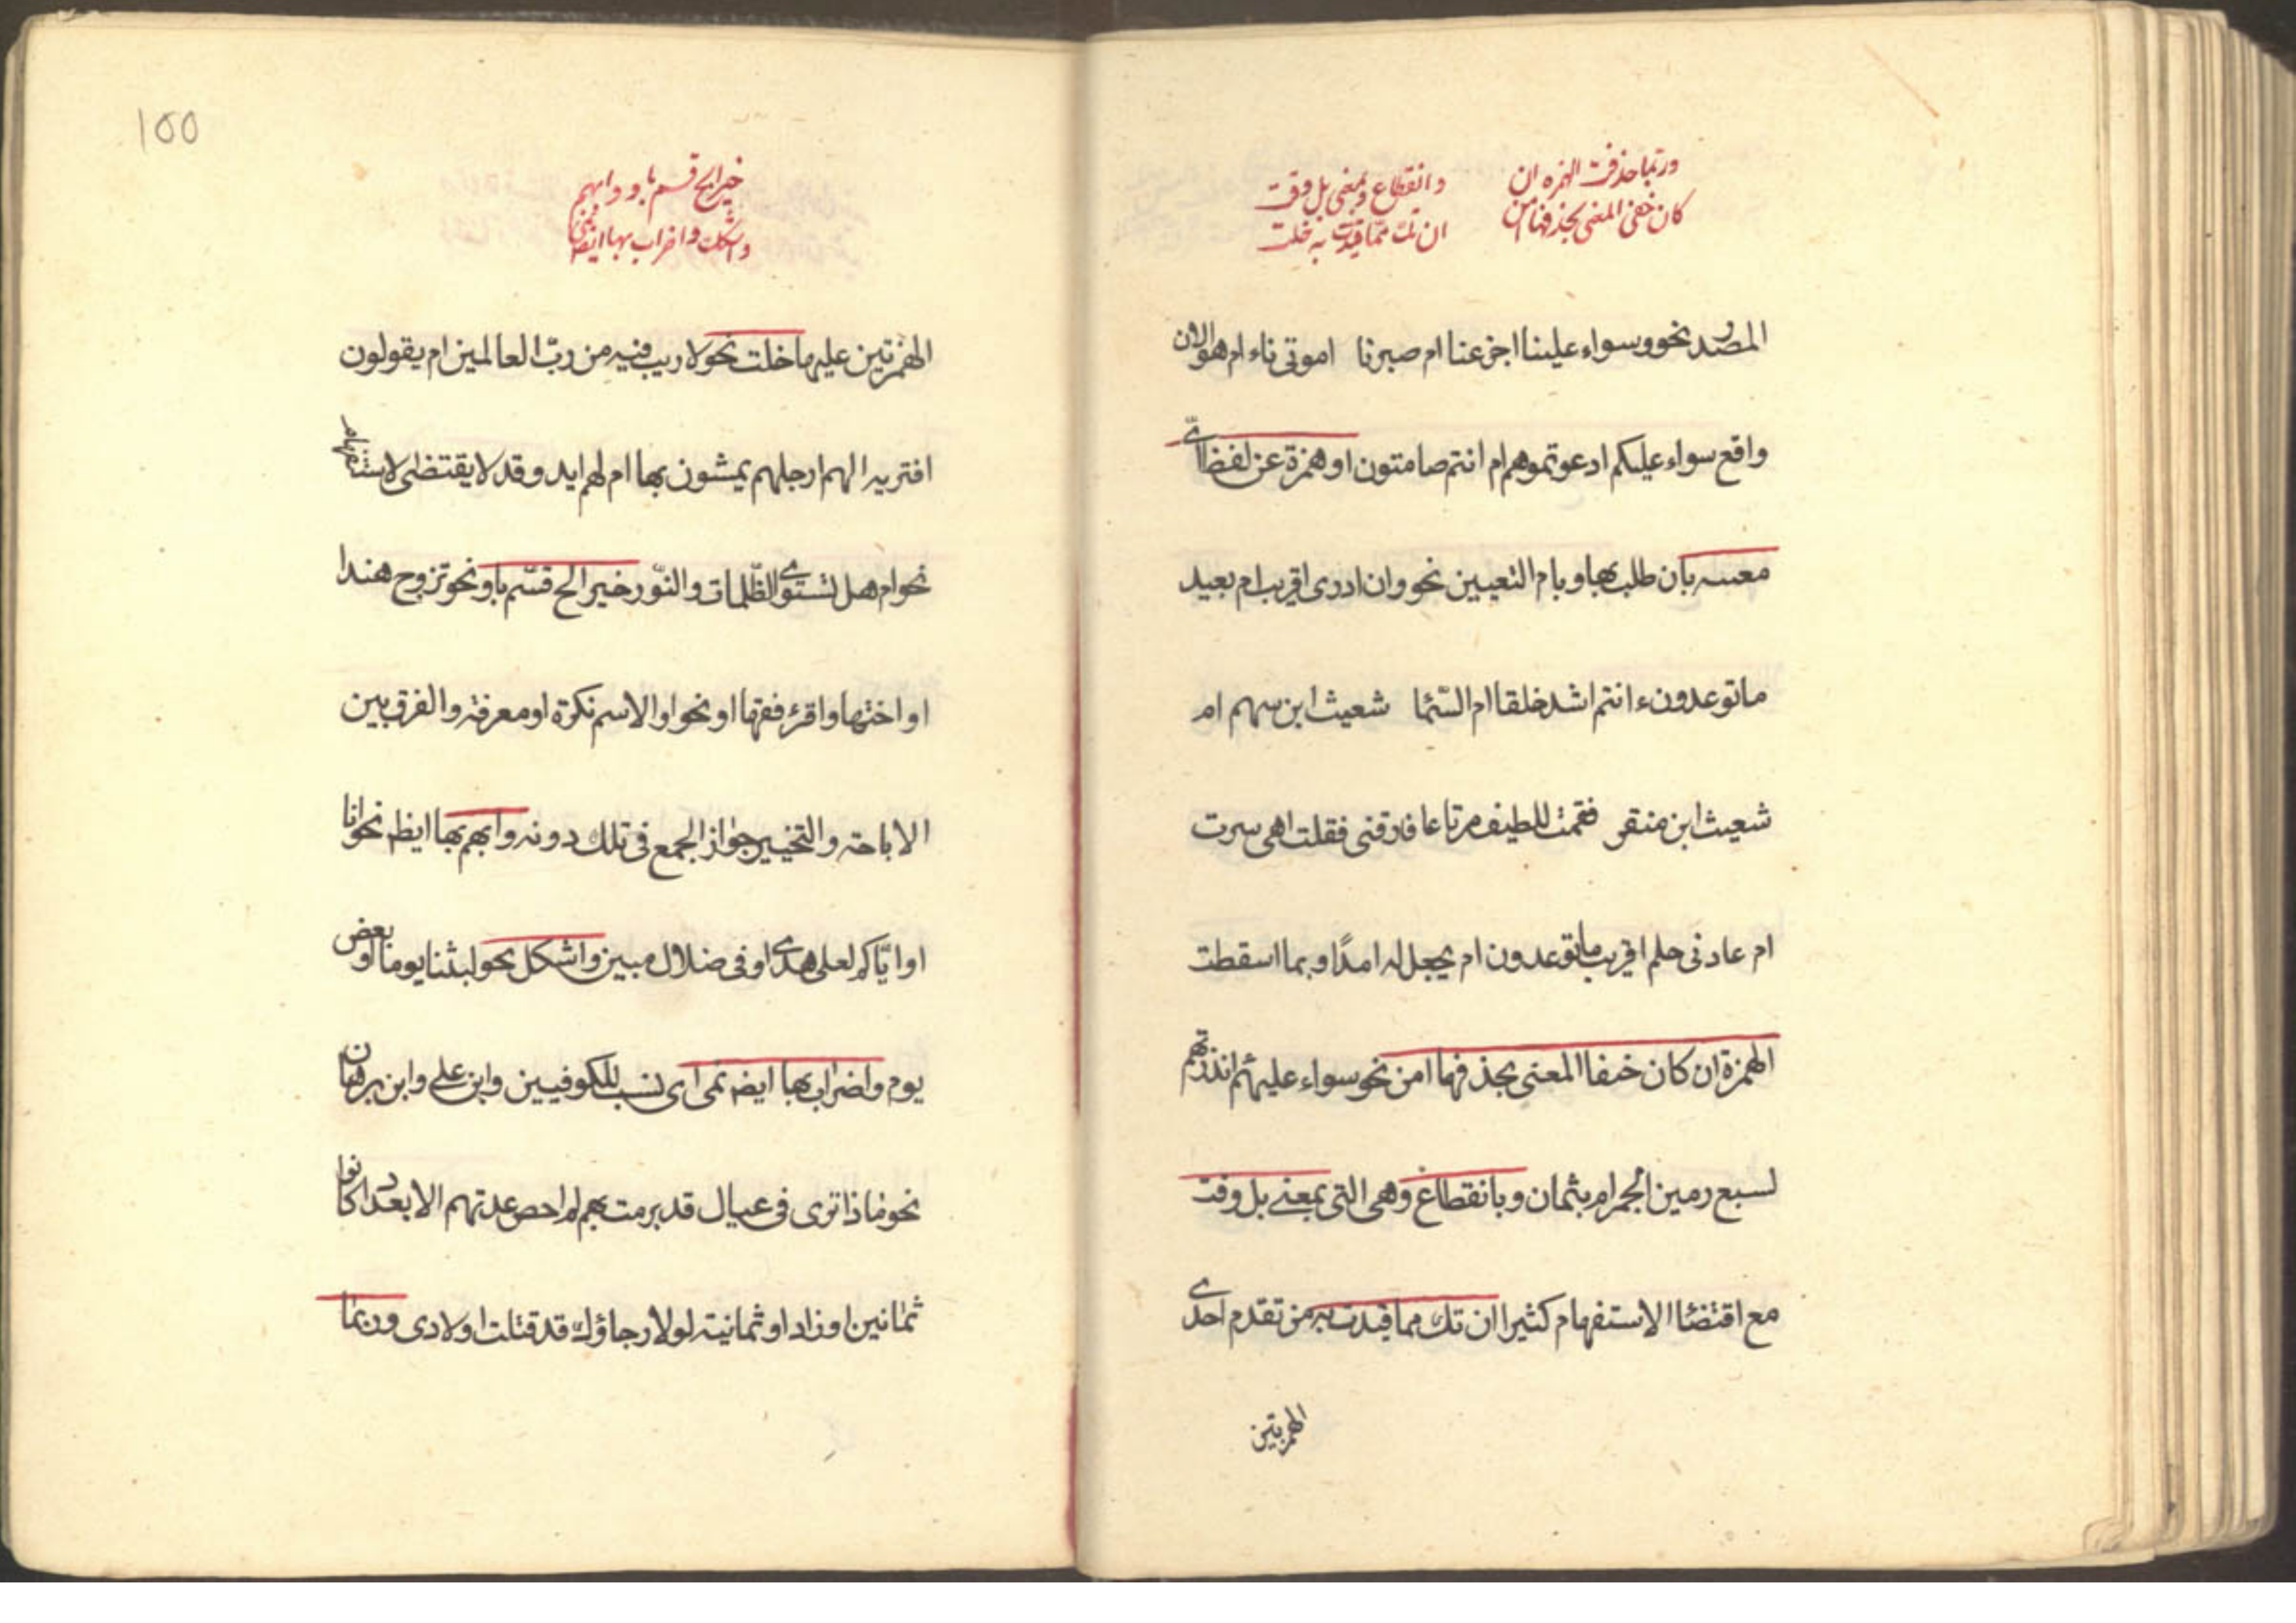 وربما حذفت الهمزه ان
كان خفى المعنى بحذفها امن
وانقطاع وبمعنى بل وفت
ان تك مما قيدت به خلت
المصدر نحو وسواء علينا اجزعنا ام صبرنا اموتى ناء ام هو الان
واقع سواء عليكم ادعوتموهم ام انتم صامتون او همزة عن لفظ اىّ
معسه بان طلب بها وبام التعيين نحو وان ادرى اقريب ام بعيد
ما توعدون ءانتم اشد خلقا ام السّمٓا شعيث ابن سهم ام
شعيث ابن منقر فقمت للطيف مرتاعا فارقنى فقلت اهى سرت
ام عادنى حلم اقريب ما توعدون ام يجعل له امدًا وبما اسقطت
الهمزة ان كان خفا المعنى بحذفها امن نحو سواء عليهم انذرتهم
لسبع رمين الجمرام بثمان وبانقطاع وهى التى بمعنى بل وفت
مع اقتضٓا الاستفهام كثيرا ان تك مما قيدت به من تقدم احدى
الهمزتين
100
خير ابح قسم باو وابهم
واشكك واضراب بها ايضا نمى
الهمزتين عليها خلت نحو لا ريب فيه من ربّ العالمين ام يقولون
افتريه الهم ارجلهم يمشون بها ام لهم ايد وقد لا يقتضى الاستفهام
نحو ام هل تستوى الظّلمات والنّور خير ابح قسّم باو نحو تزوج هندا
او اختها واقرء فقها او نحوا والاسم نكرة او معرفة والفرق بين
الاباحة والتخيير جواز الجمع فى تلك دونه وابهم بها ايظ نحو انا
او ايّاكم لعلى هدى او فى ضلال مبين واشكل نحو لبثنا يوما او بعض
يوم واضراب بها ايضا نمى اى نسب للكوفيين وابن على وابن برهان
نحو ماذا ترى فى عيال قد برمت بهم لم احص عدتهم الا بعداد كانوا
ثمانين او زاد او ثمانية لولا رجاؤك قد قتلت اولادى وربمٓا